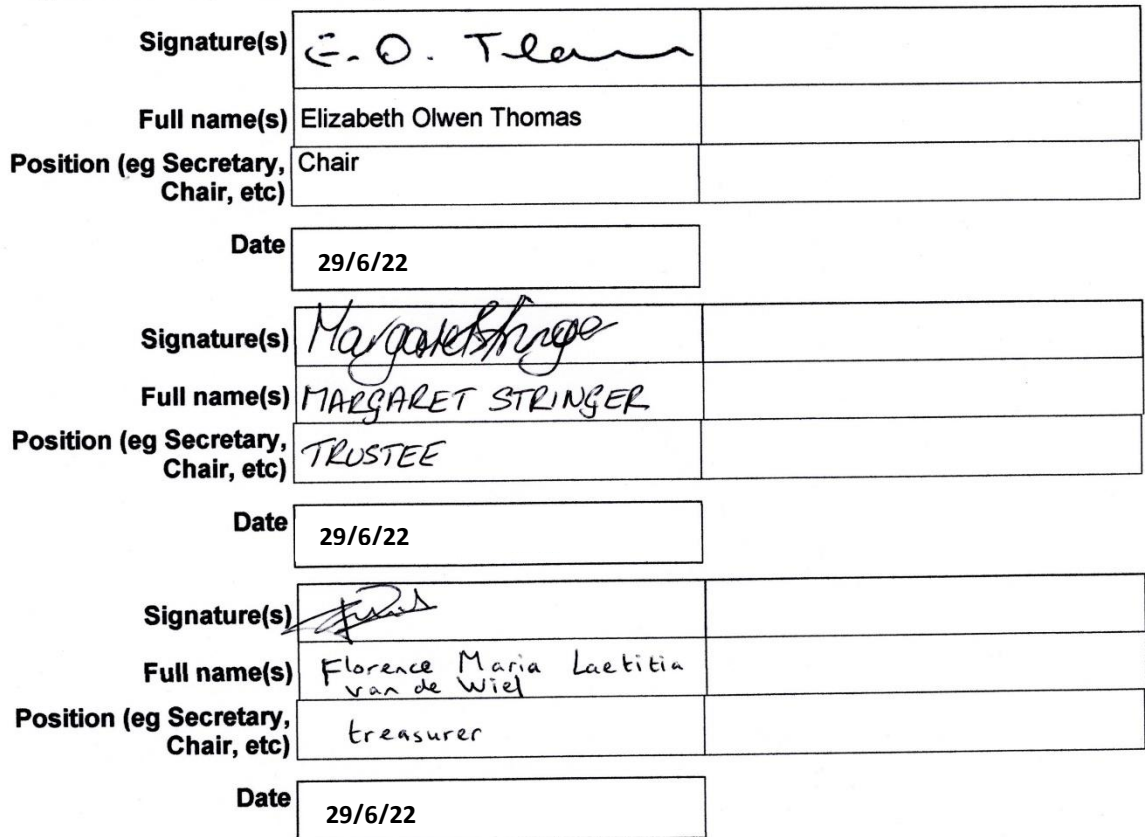 Signature(s) E. O. Thomas
Full name(s) Elizabeth Olwen Thomas
Position (eg Secretary, Chair
Chair, etc)
Date 29/6/22
Signature(s) Margaret Stringer
Full name(s) MARGARET STRINGER
Position (eg Secretary, TRUSTEE
Chair, etc)
Date 29/6/22
Signature(s)
Full name(s) Florence Maria Laetitia
van de Wiel
Position (eg Secretary, treasurer
Chair, etc)
Date 29/6/22